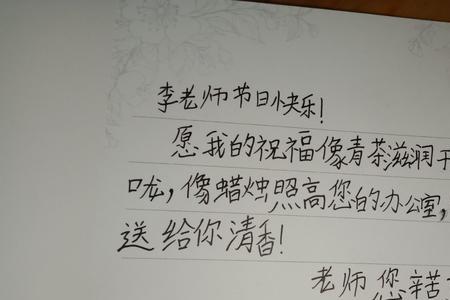 李老师节日快乐!
愿我的祝福像青茶滋润
咙,像蜡烛照高您的办公室,
送给你清香!
老师您辛苦